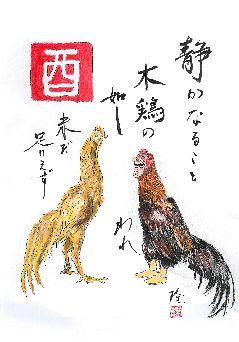 酉
静かなること
木鶏の
如し
われ
未だ
足りえず